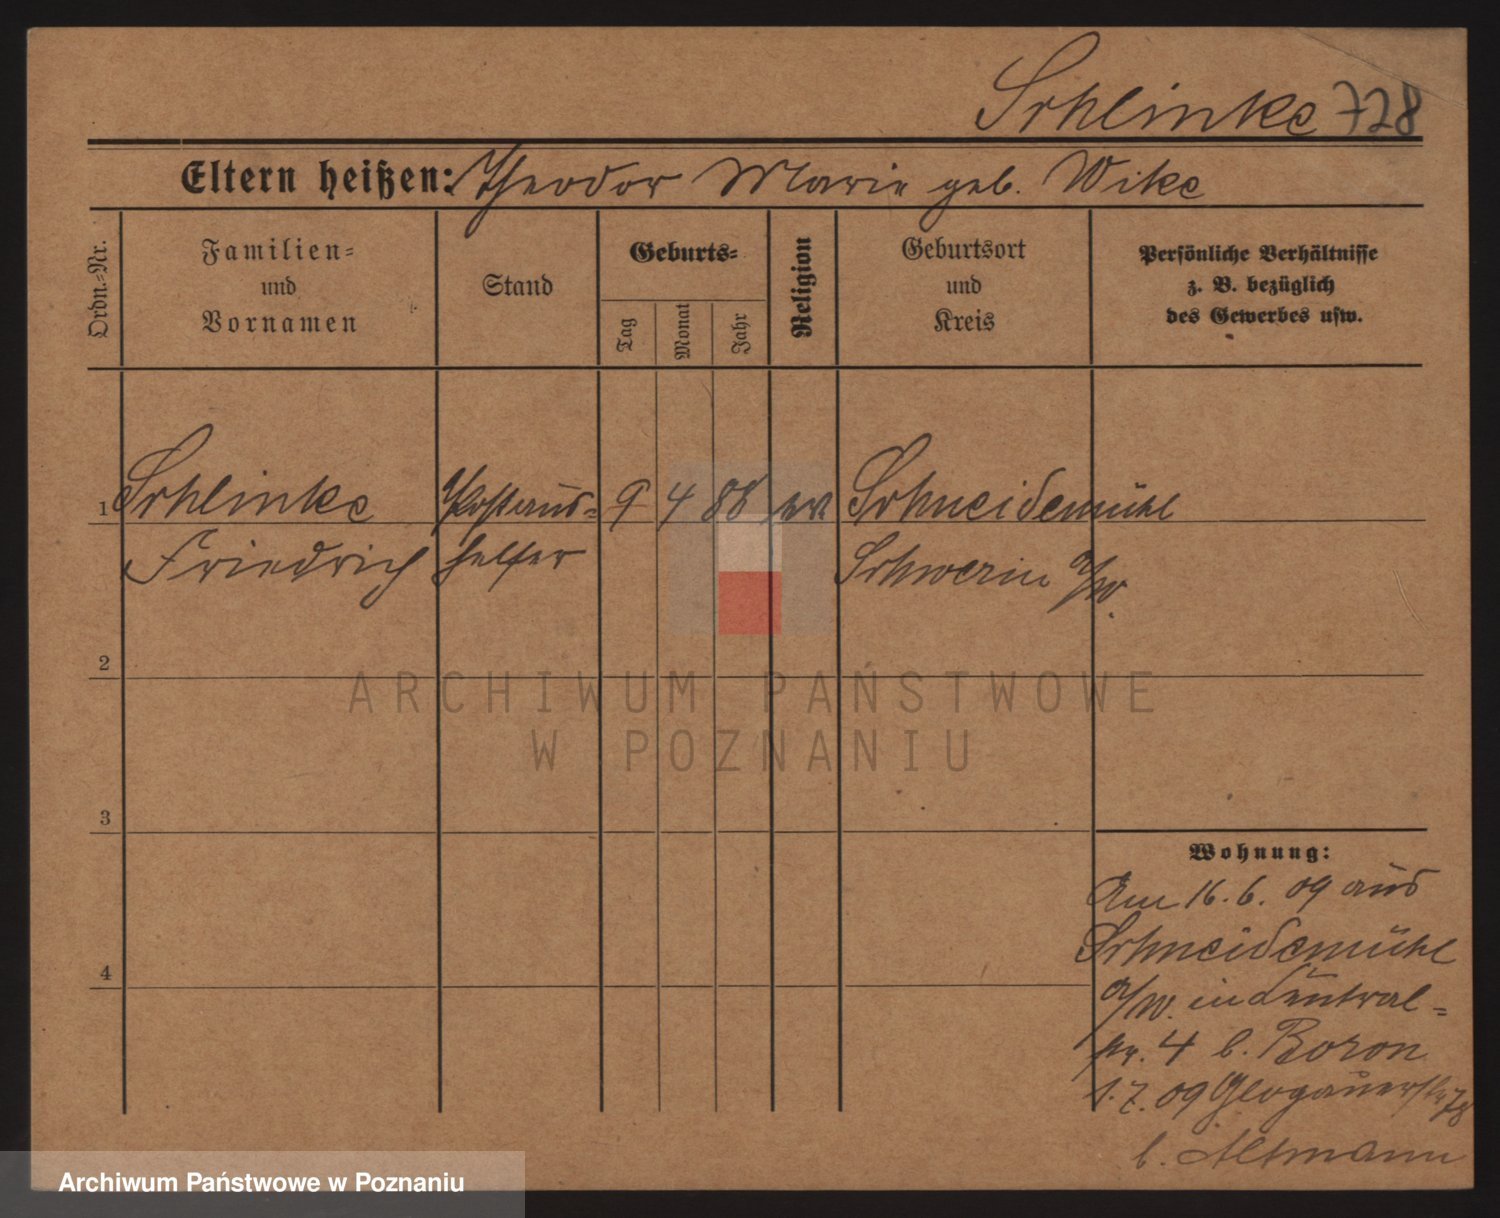 Schlinke 728
Eltern heißen: Theodor Marie geb. Wike
Ordn.-Nr.
Familien-
und
Vornamen
Stand
Geburts-
Tag
Monat
Jahr
Religion
Geburtsort
und
Kreis
Persönliche Verhältnisse
z. B. bezüglich
des Gewerbes usw.
1 Schlinke Postaus- 9 4 88 ev Schneidemühl
Friedrich helfer Schwerin a/W.
2
ARCHIWUM PAŃSTWOWE
W POZNANIU
3
Wohnung:
Am 16.6.09 aus
Schneidemühl
4
a/W. in Central-
4 b. Boron
1.7.09 Glogauerstr
b. Altmann
Archiwum Państwowe w Poznaniu